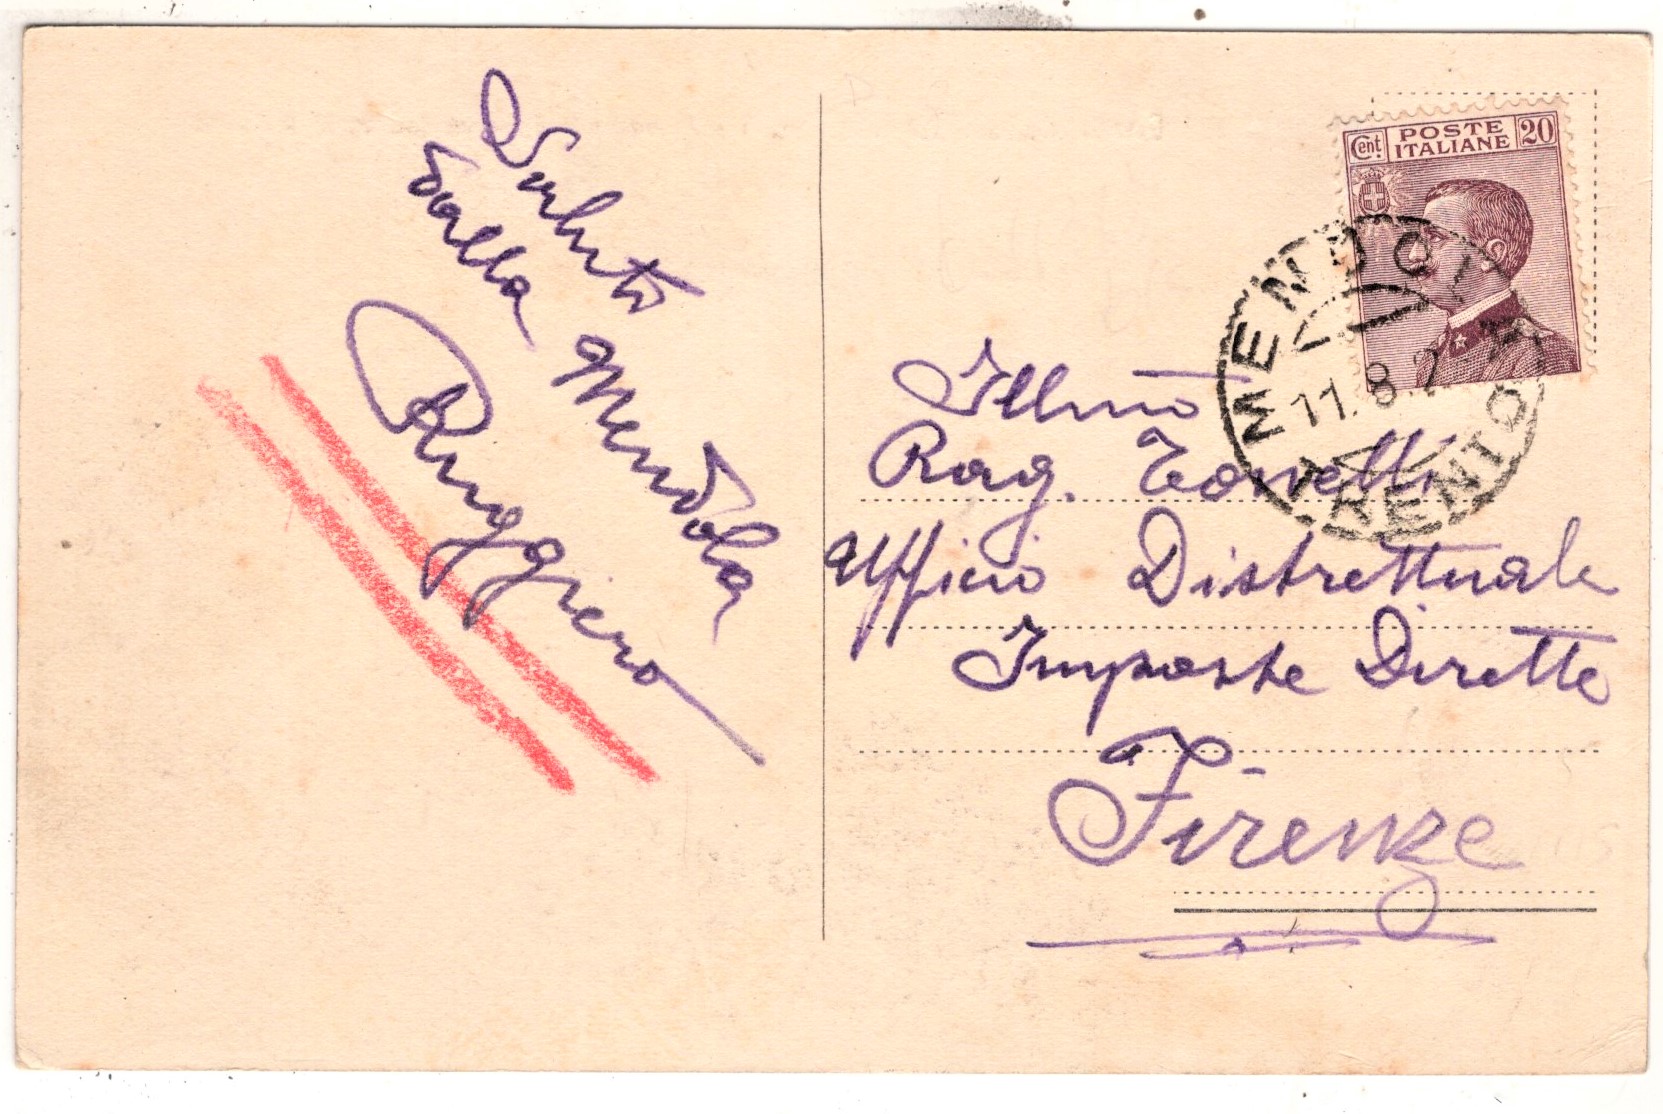 Saluto
dalla Mendola
Ruggiero
Cent. POSTE ITALIANE 20
11.8.2
TRENTO
Illmo
Rag.
Ufficio Distrettuale
Imposte Dirette
Firenze